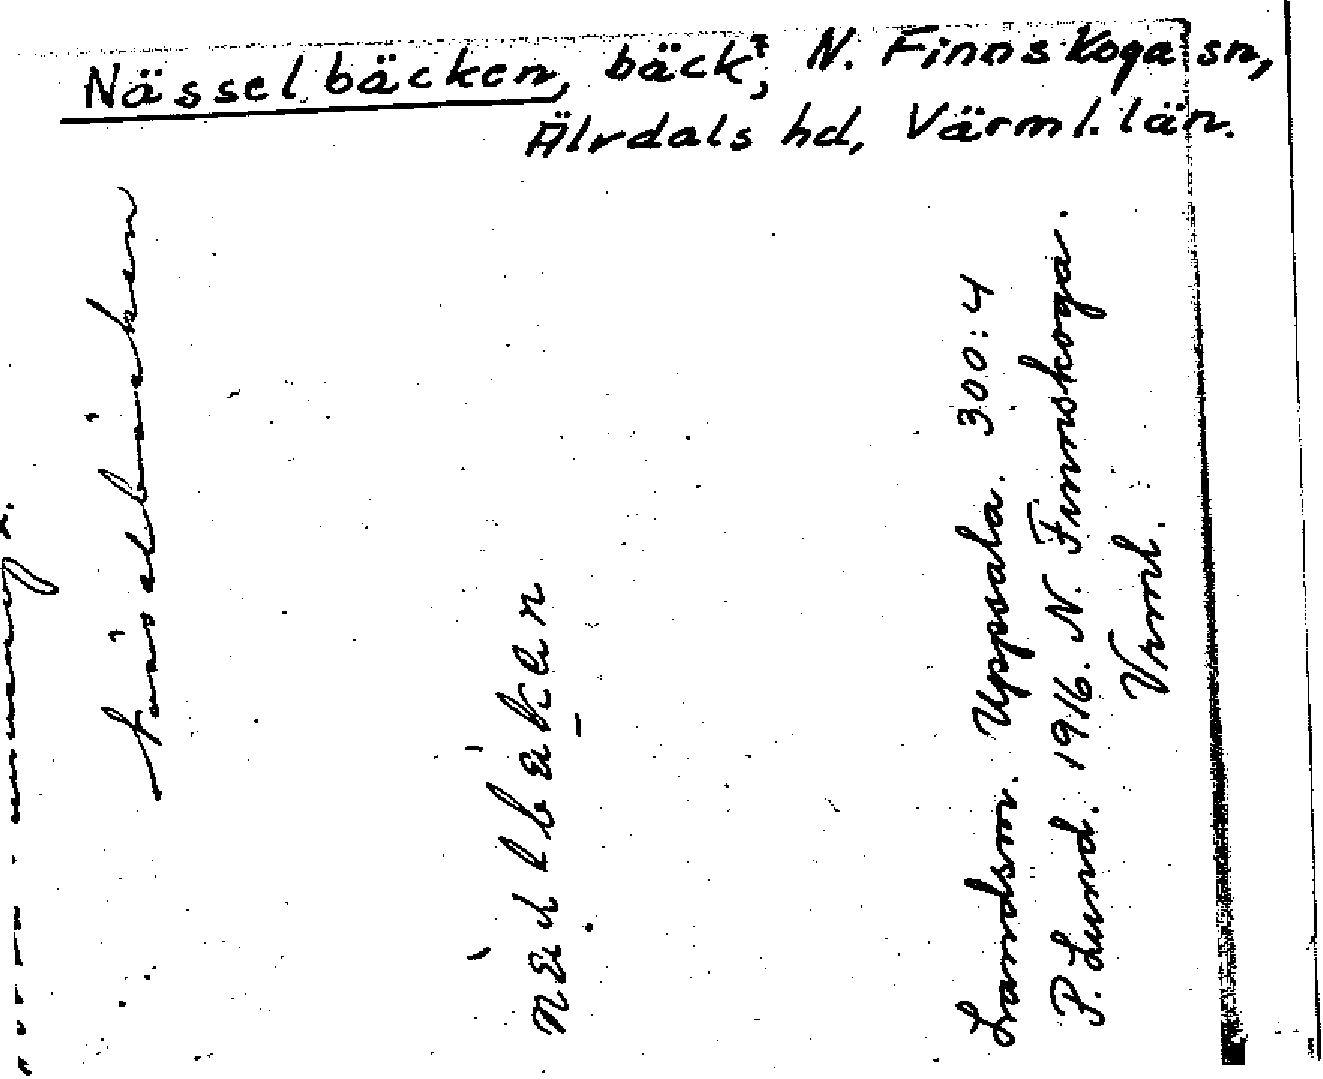 Nässelbäcken, bäck?, N. Finnskoga sn,
Älvdals hd, Värml. län.
näselbäcken
Landsm. Uppsala. 300:4
P. Lund. 1916. N. Finnskoga.
Vrml.